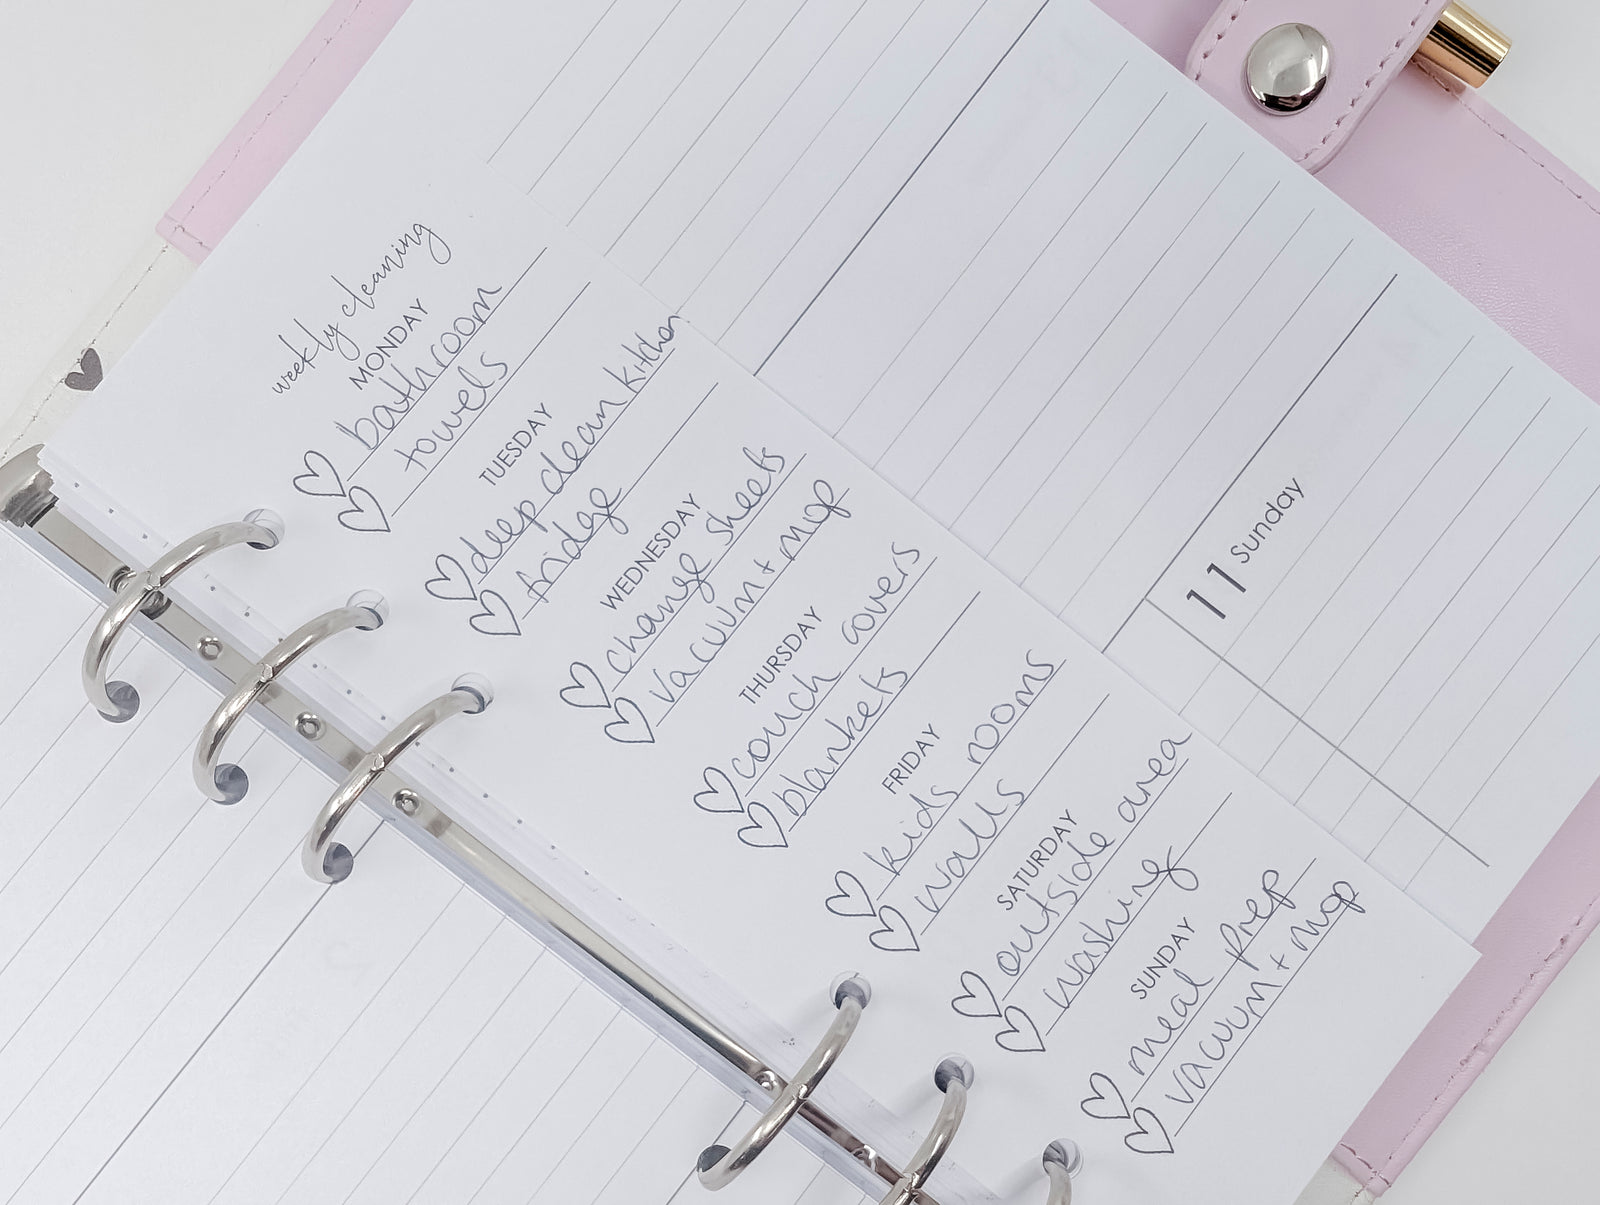 weekly cleaning
MONDAY
bathroom
towels
TUESDAY
deep clean kitchen
fridge
WEDNESDAY
change sheets
vacuum + mop
THURSDAY
couch covers
blankets
FRIDAY
kids rooms
walls
SATURDAY
outside area
washing
SUNDAY
meal prep
vacuum + mop
11 Sunday